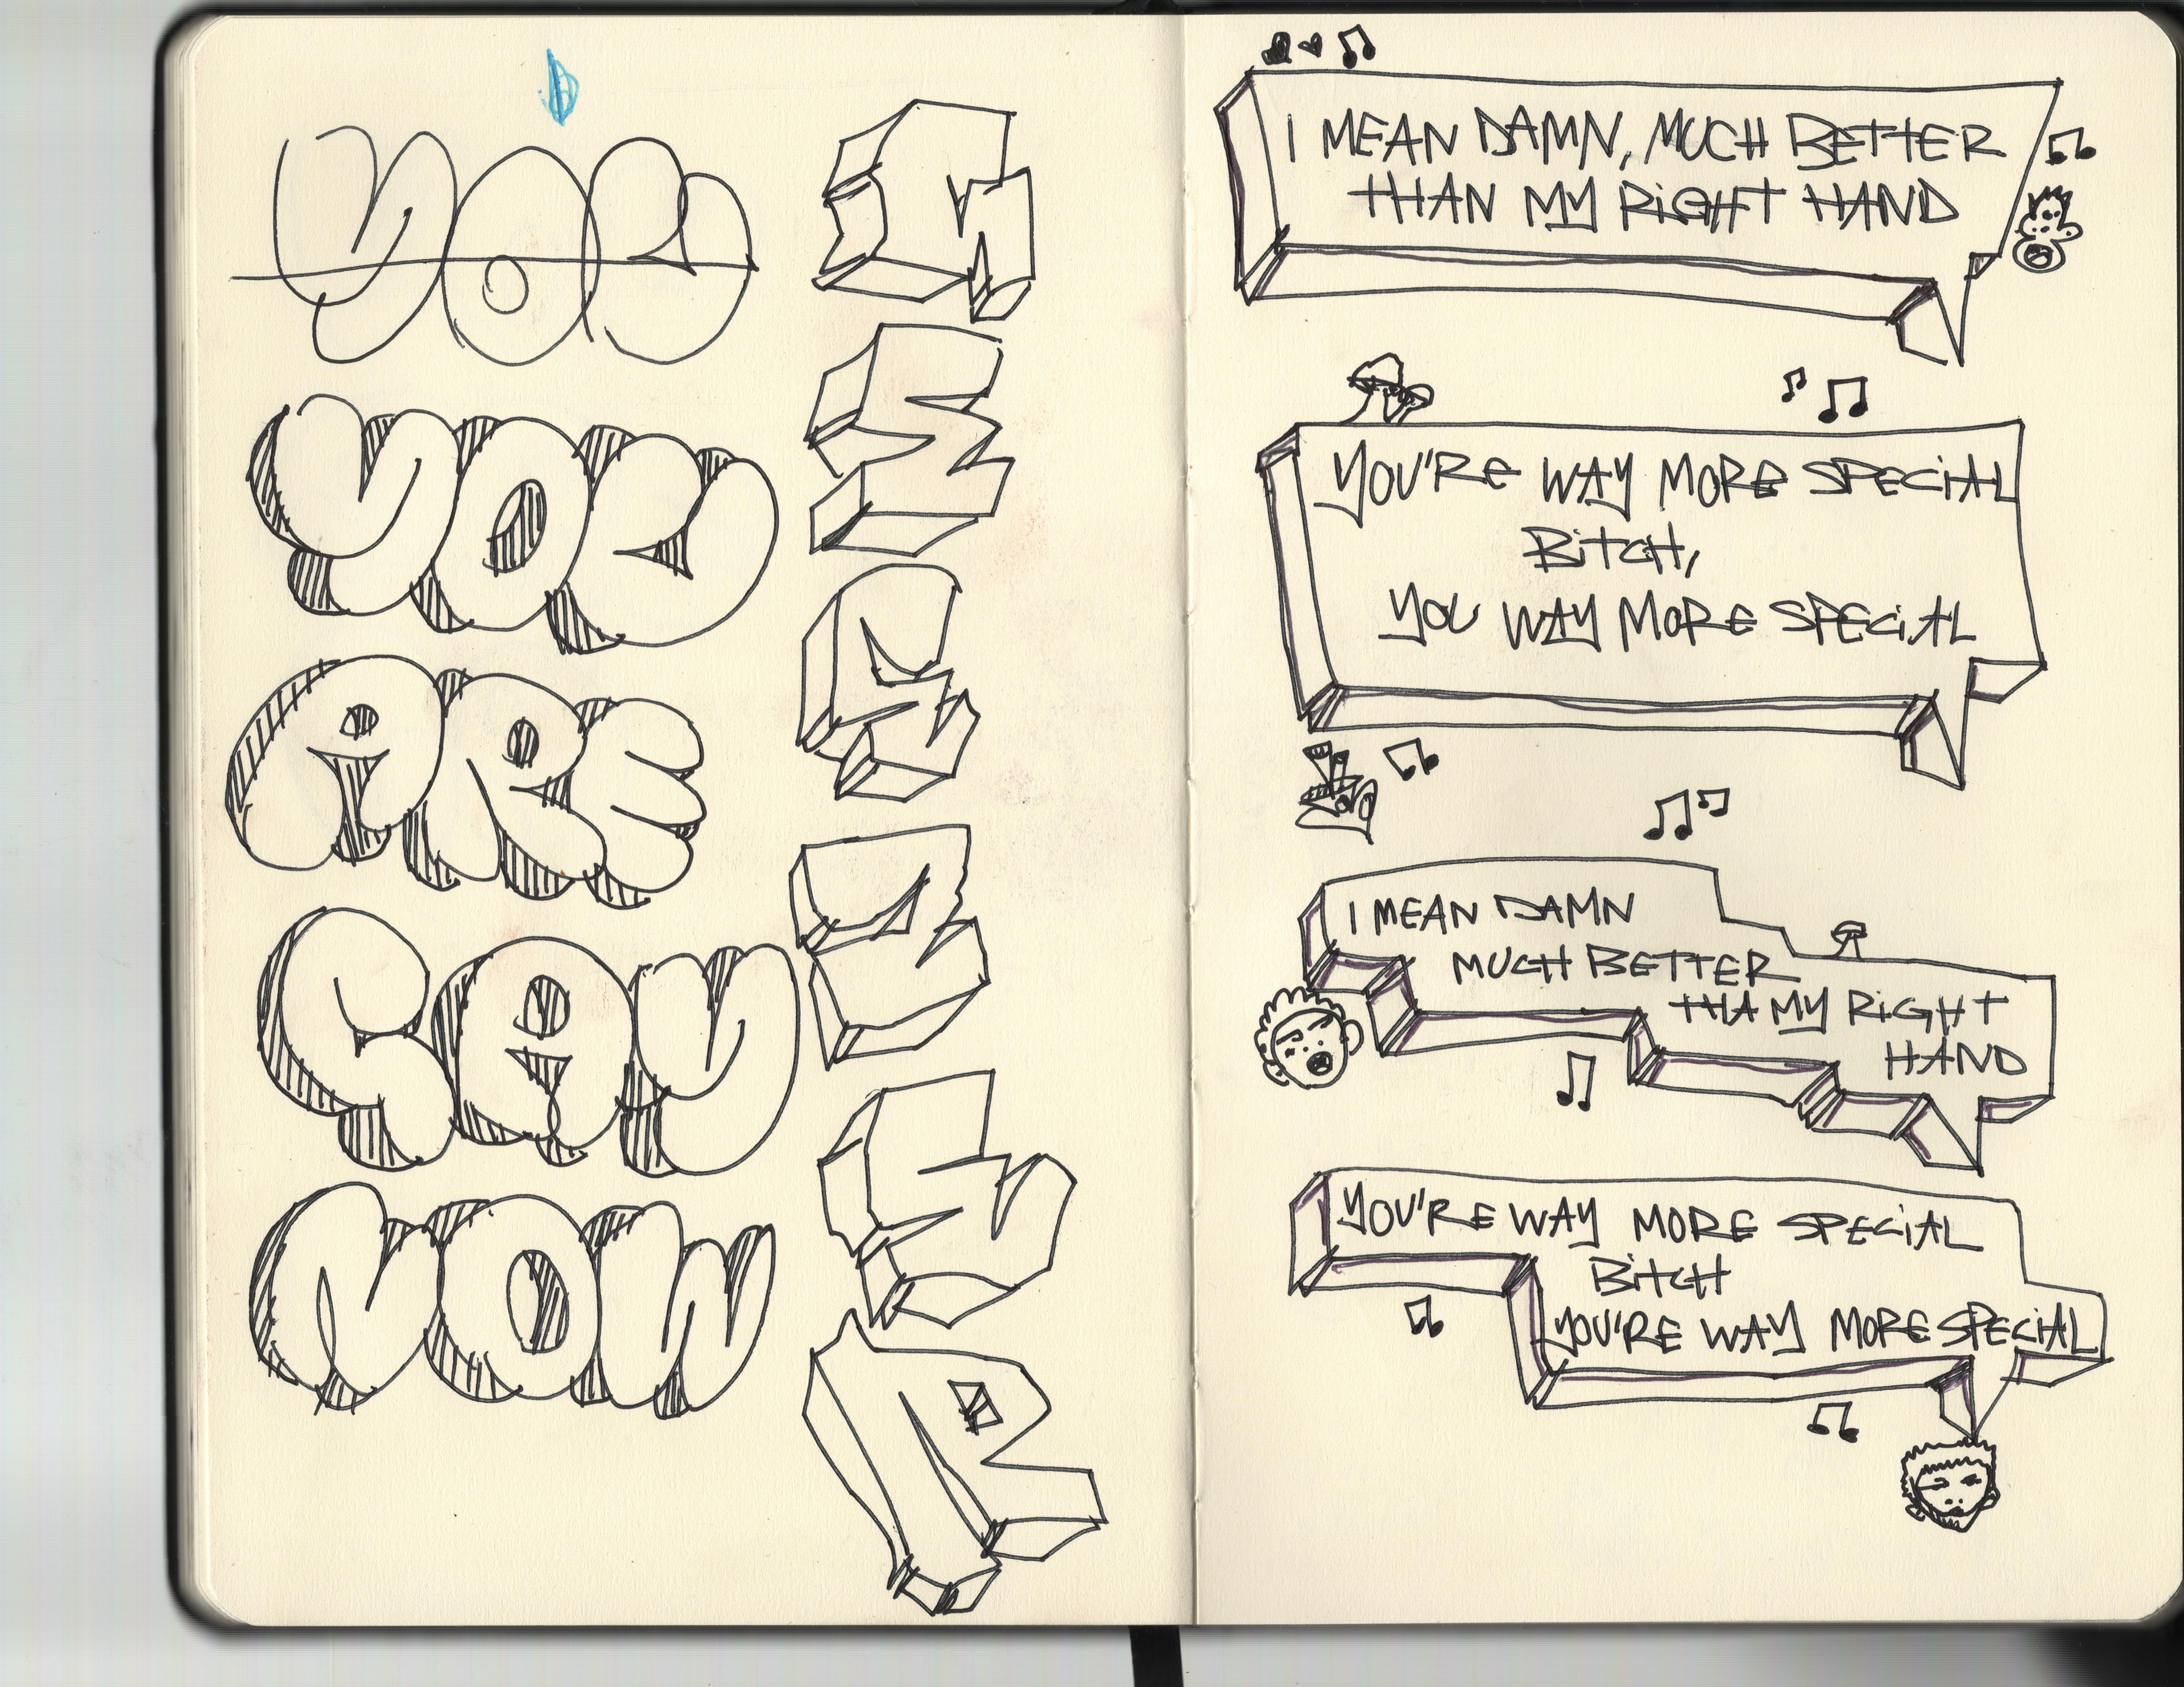 YOU
YOU
ARE
GAY
NOW
I MEAN DAMN, MUCH BETTER
THAN MY RiGHT HAND
YOU'RE WAY MORE SPECiAL
BiTCH,
YOU WAY MORE SPECiAL
I MEAN DAMN
MUCH BETTER
THA MY RiGHT
HAND
YOU'RE WAY MORE SPECiAL
BiTCH
YOU'RE WAY MORE SPECiAL